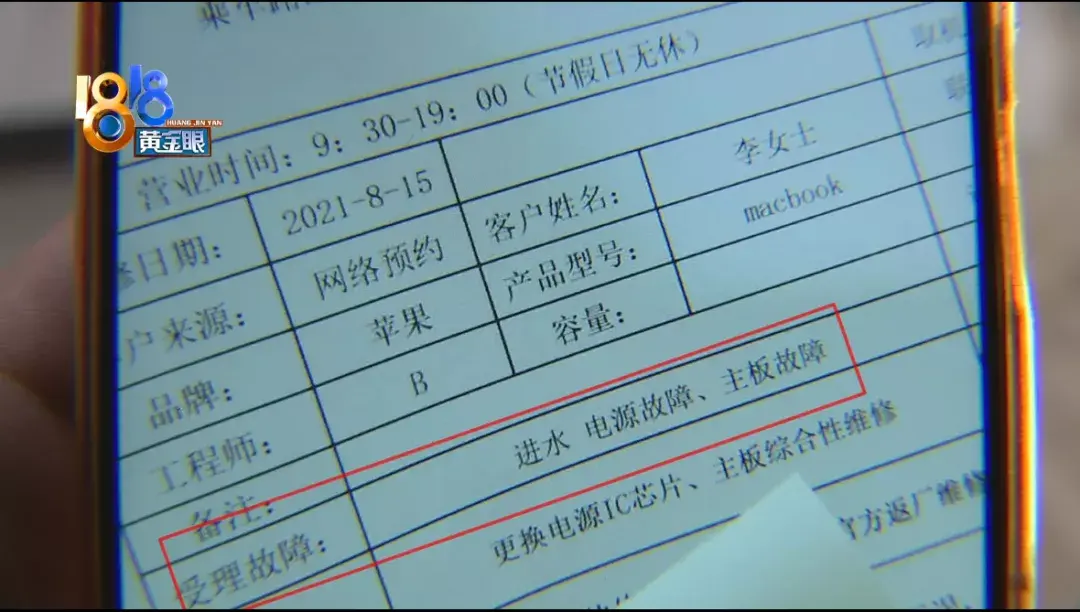 1818
HUANG JIN YAN
黄金眼
营业时间：9：30-19：00（节假日无休）
日期： 2021-8-15 客户姓名： 李女士
户来源： 网络预约 产品型号： macbook
品牌： 苹果 容量：
工程师： B
备注：
受理故障： 进水 电源故障、主板故障
更换电源IC芯片、主板综合性维修
官方返厂维修